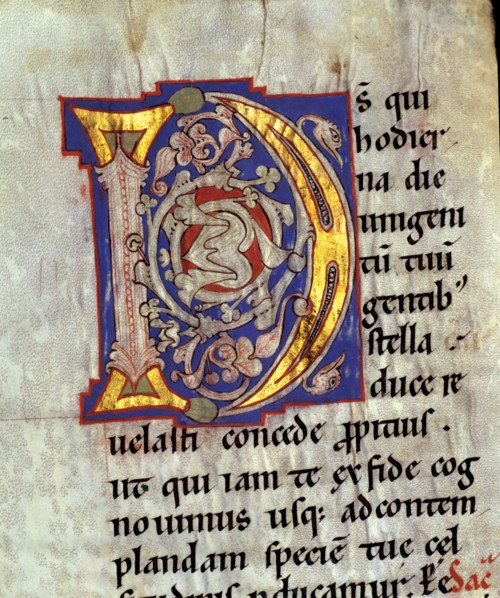 D
s̄ qui
hodier
na die
unigeni
tū tuū
gentib⁹
stella .
duce re
uelasti concede ꝓpitius .
ut qui iam te ex fide cog
nouimus usq; ad contem
plandam speciē tue cel
ducamur. Sac̄